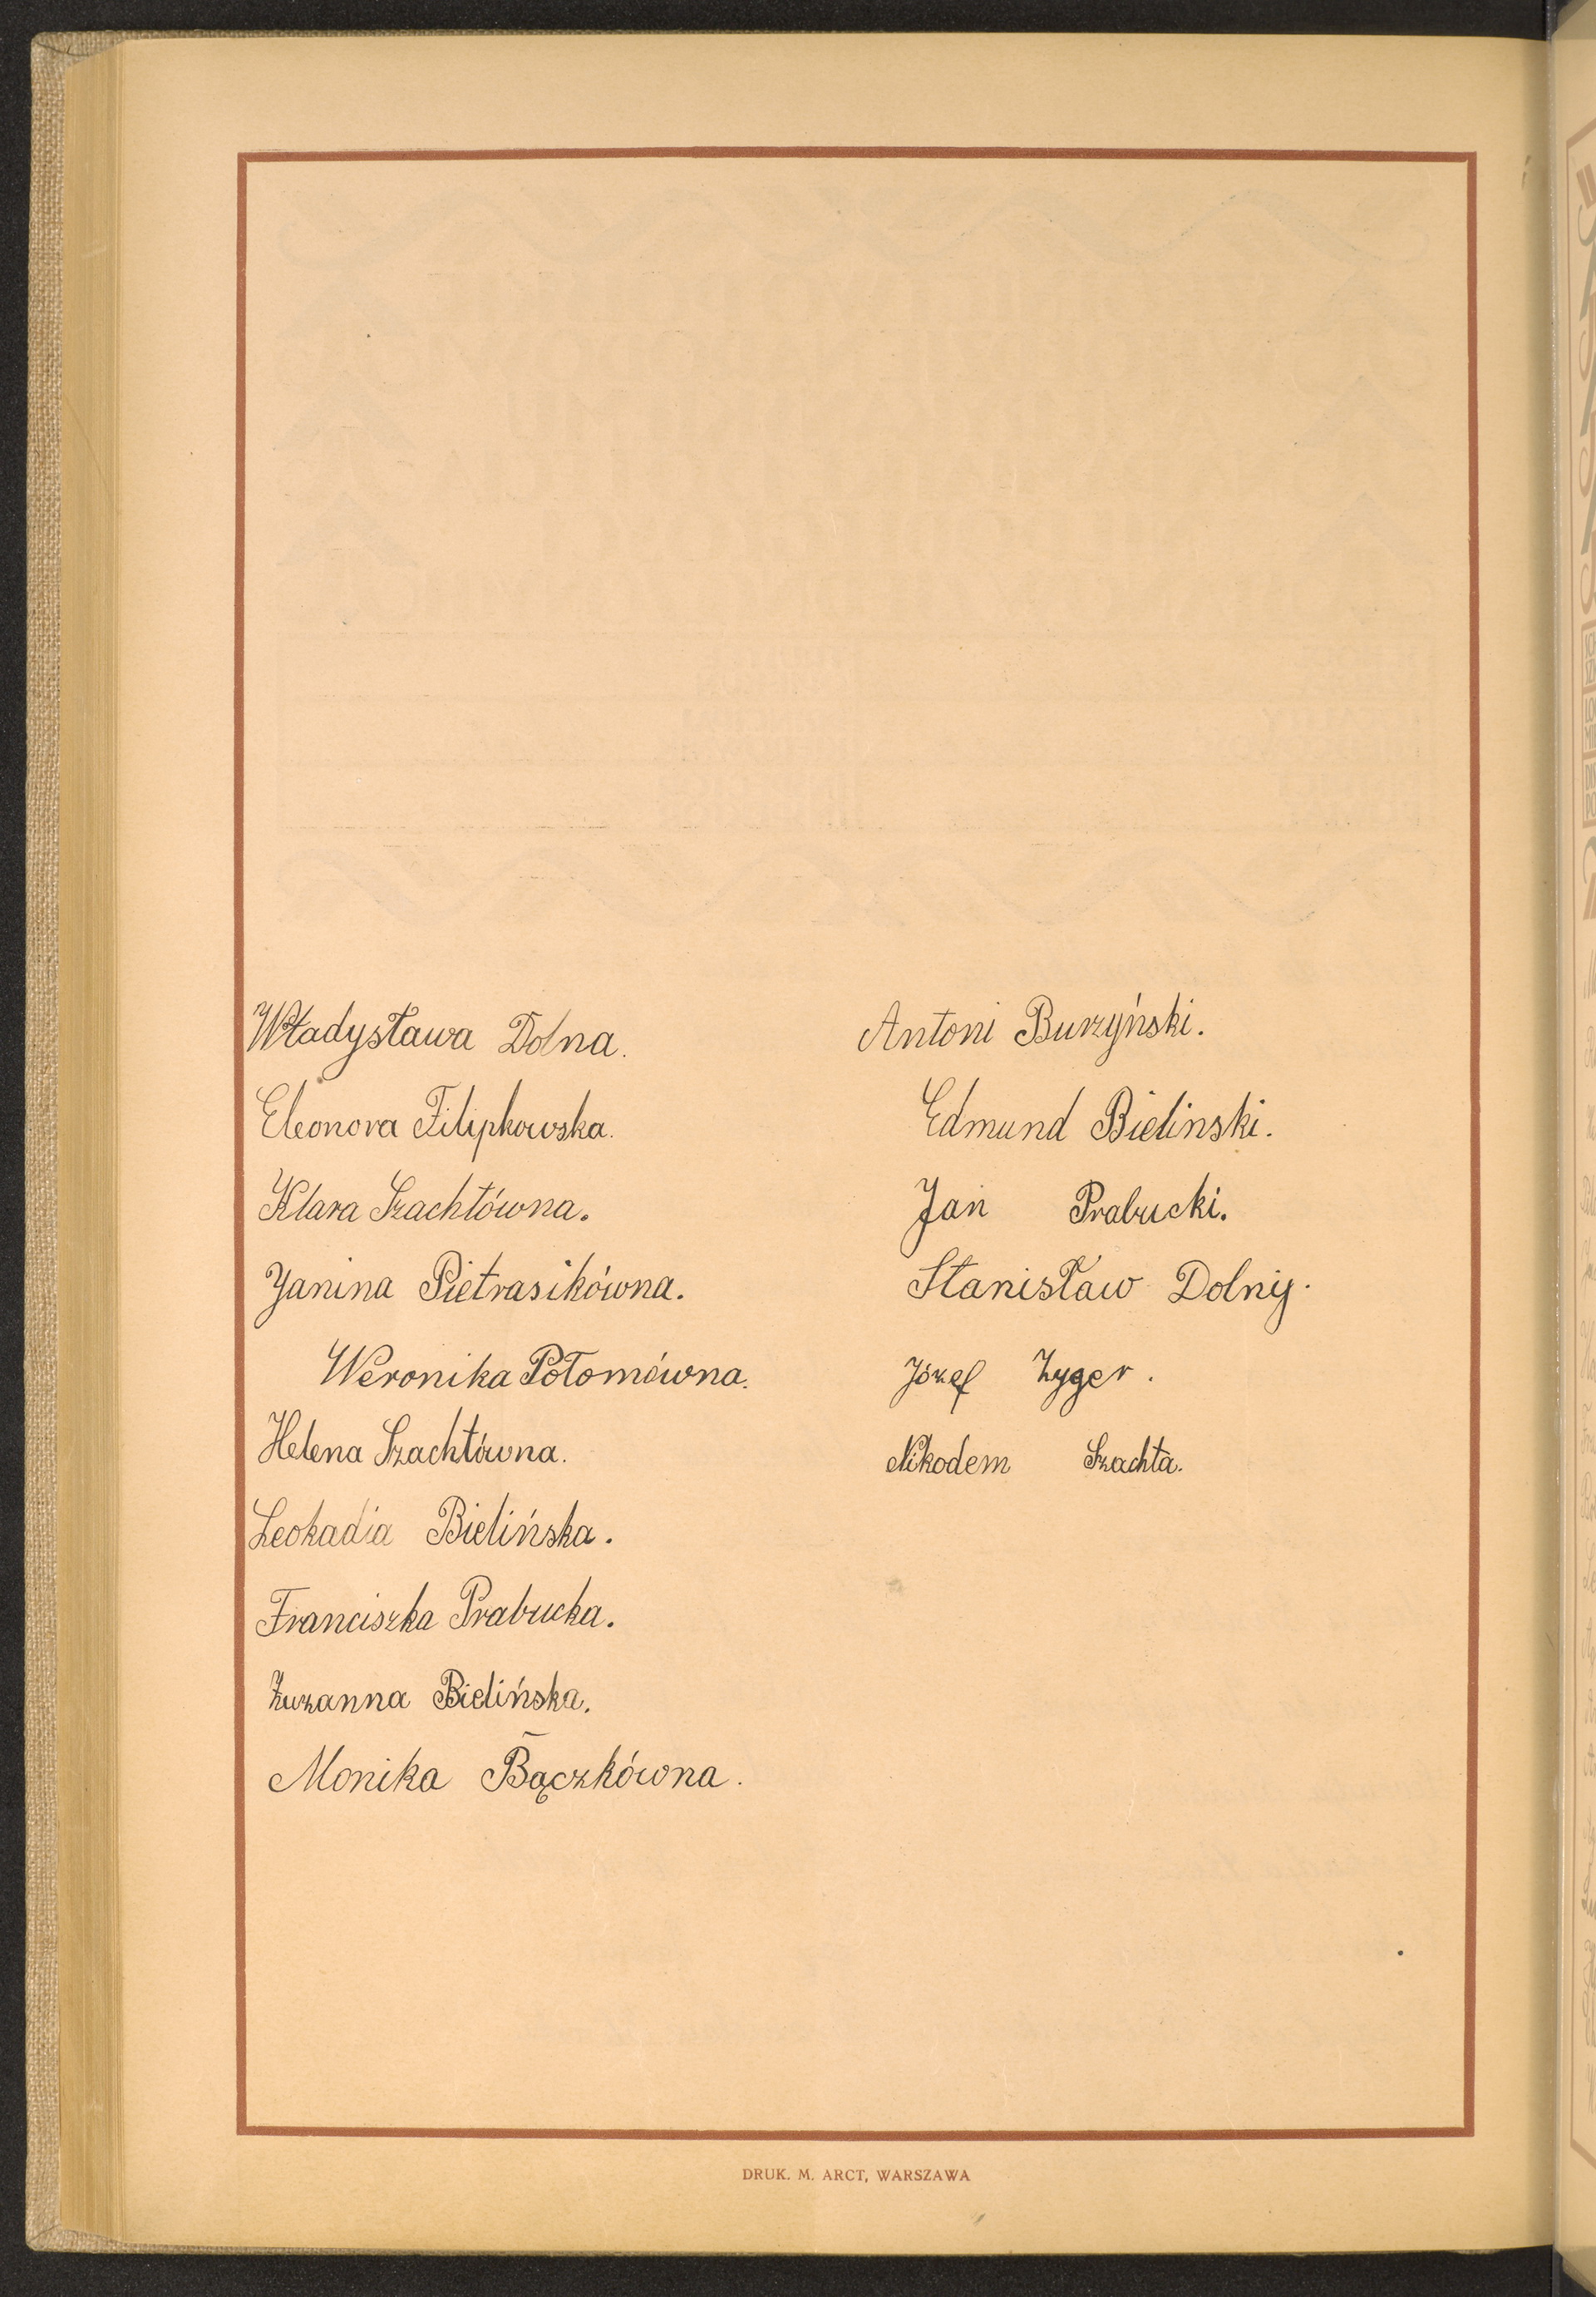 Władysława Dolna.
Eleonora Filipkowska.
Klara Szachtówna.
Janina Pietrasikówna.
Weronika Połomówna.
Helena Szachtówna.
Leokadia Bielińska.
Franciszka Prabucka.
Zuzanna Bielińska.
Monika Bączkówna.
Antoni Burzyński.
Edmund Bielinski.
Jan Prabucki.
Stanisław Dolny.
Józef Zyger.
Nikodem Szachta.
DRUK. M. ARCT, WARSZAWA